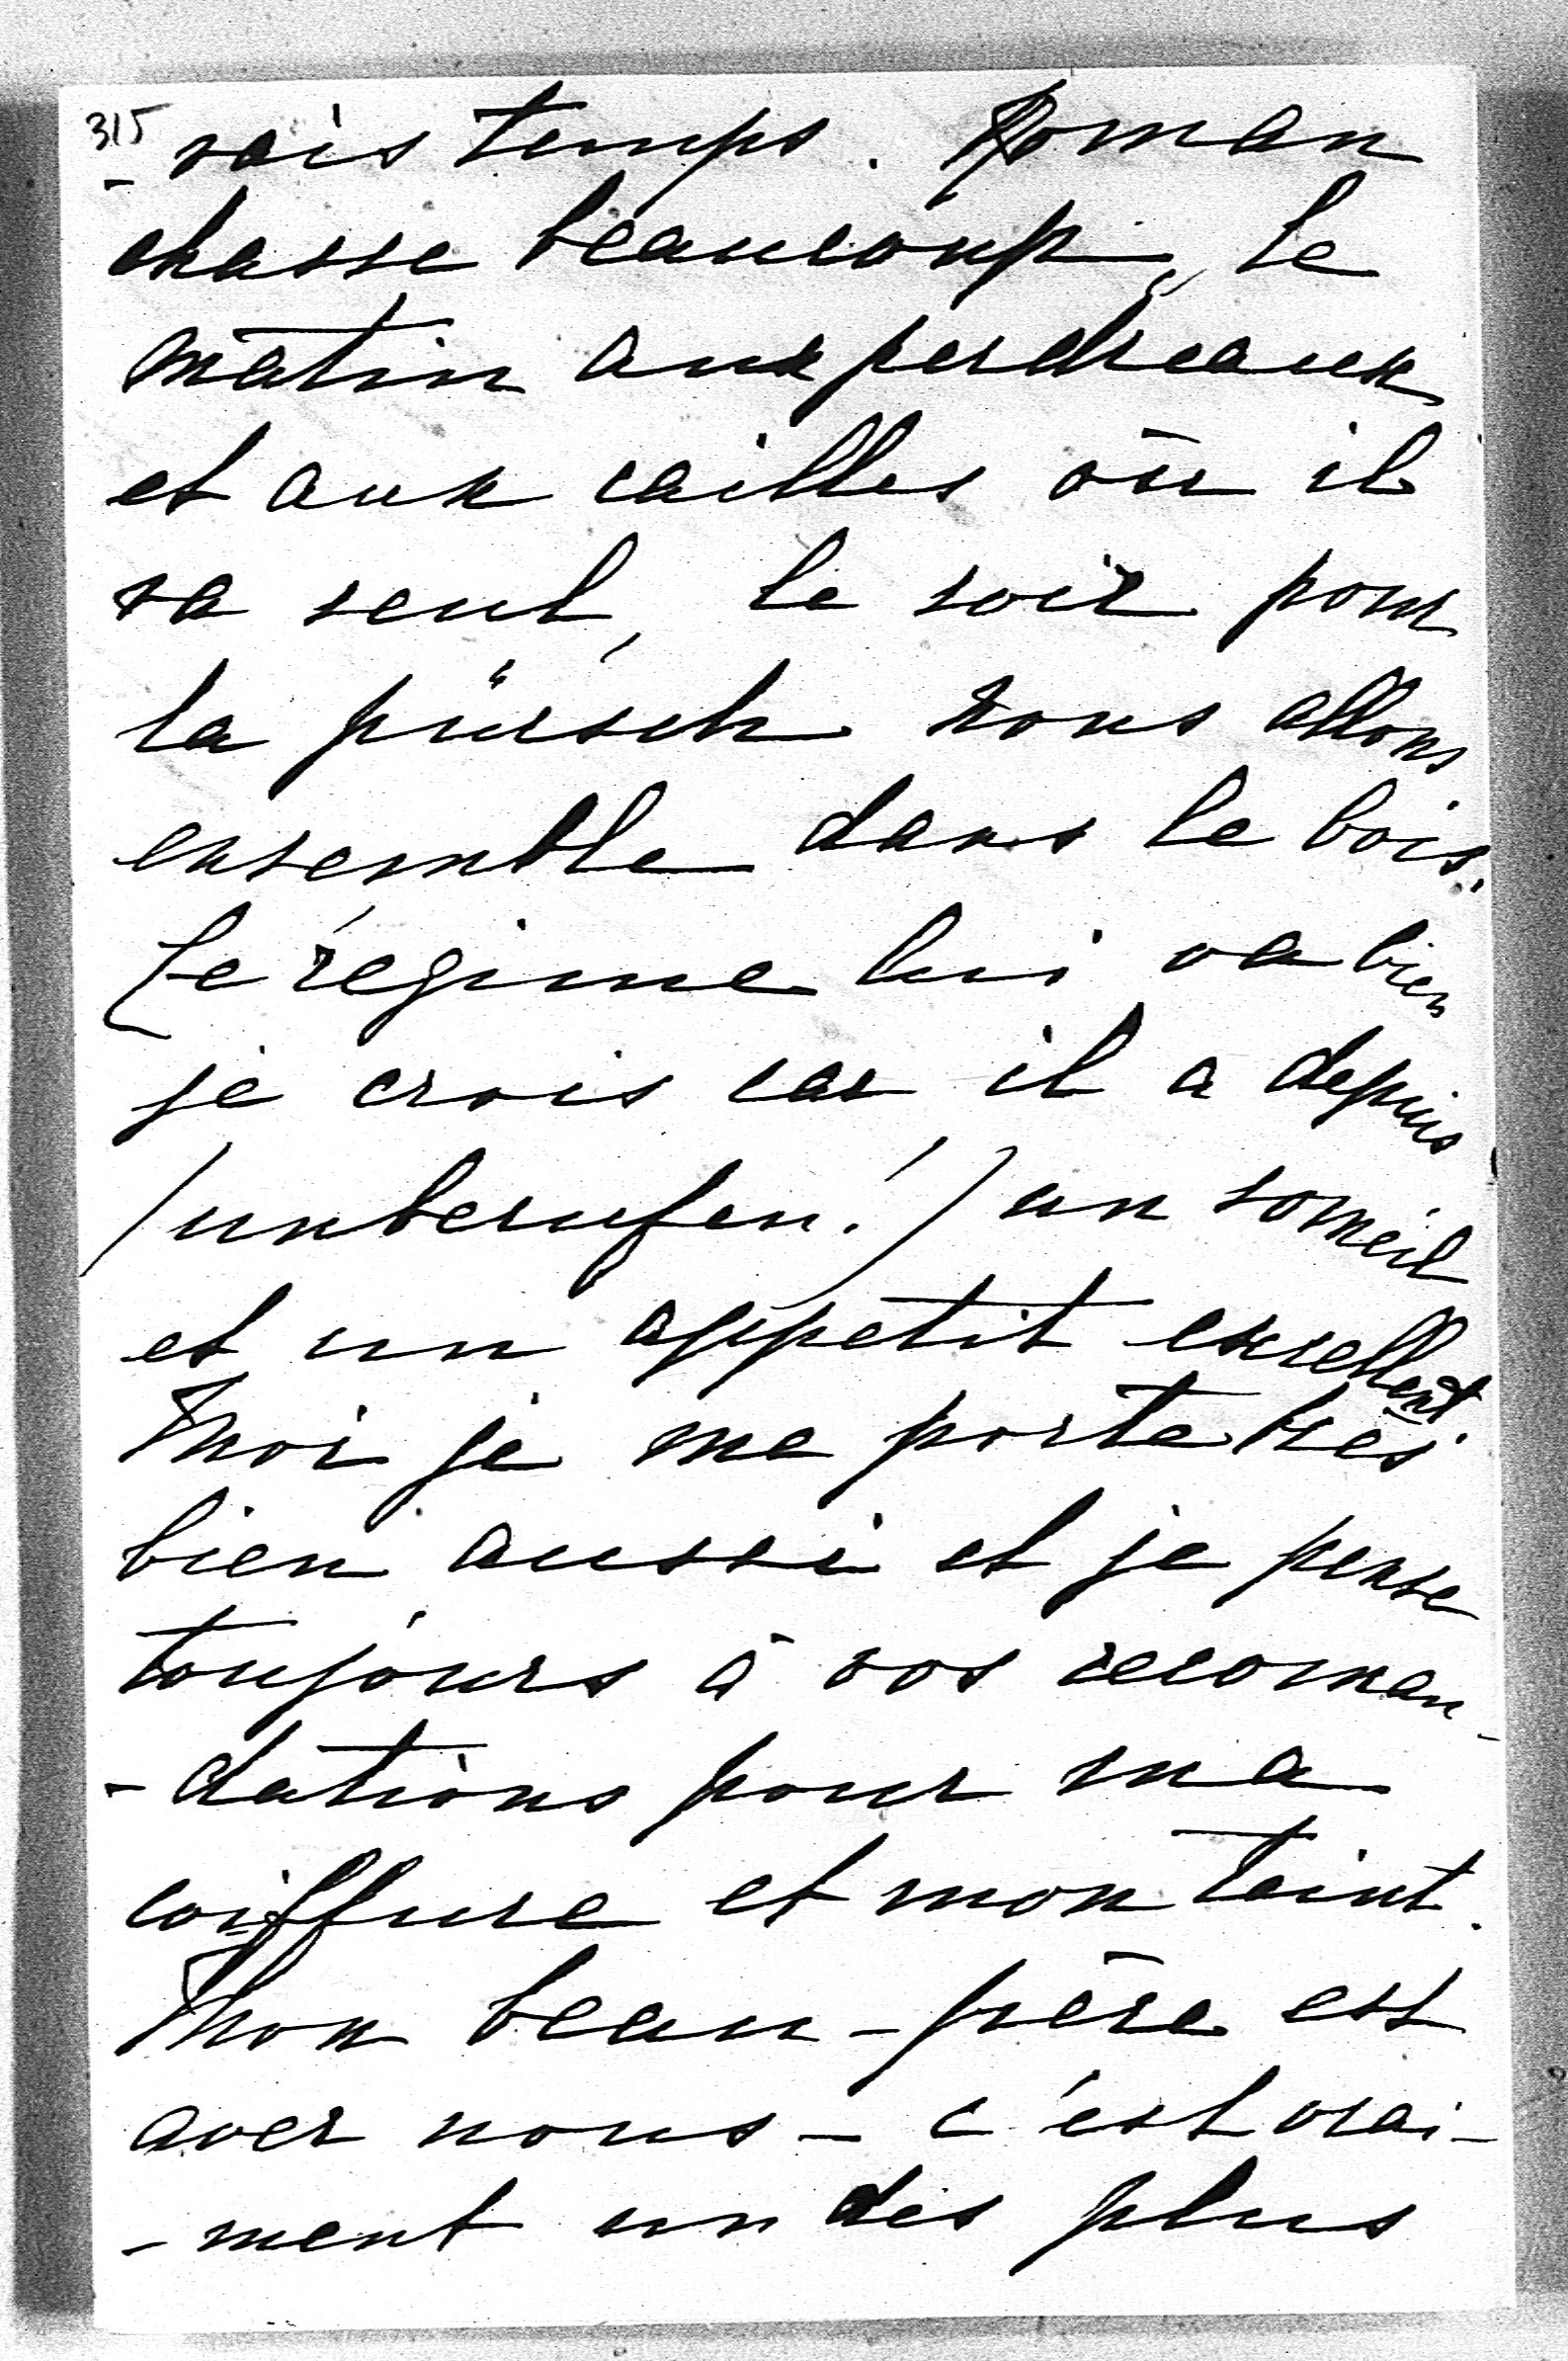 315
-vais temps. Roman
chasse beaucoup, le
matin aux perdreaux
et aux cailles où il
va seul, le soir pour
la pürsch nous allons
ensemble dans le bois.
Le régime lui va bien
je crois car il a depuis
(unberufen!) un someil
et un appetit excellent
Moi je me porte très
bien aussi et je pense
toujours à vos recoman-
-dations pour ma
coiffure et mon teint.
Mon beau-père est
avec nous - c'est vrai-
-ment un des plus